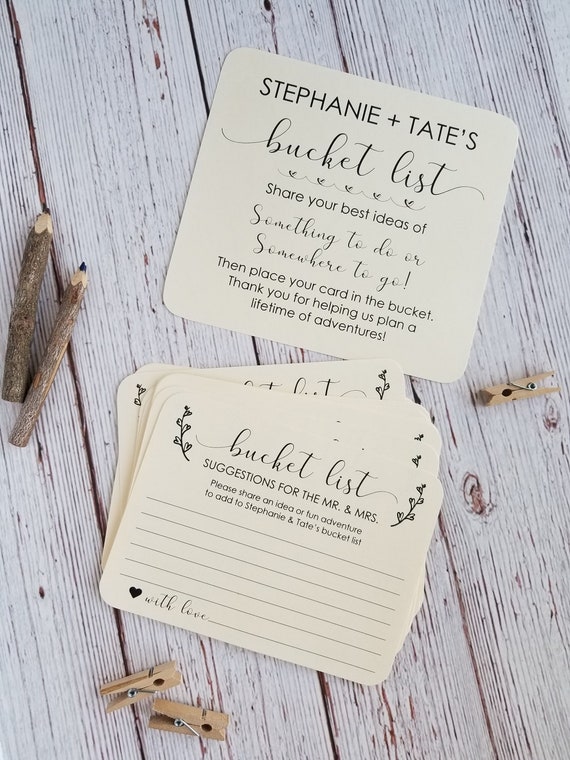 STEPHANIE + TATE'S
bucket list
Share your best ideas of
Something to do or
Somewhere to go!
Then place your card in the bucket.
Thank you for helping us plan a
lifetime of adventures!
bucket list
bucket list
SUGGESTIONS FOR THE MR. & MRS.
Please share an idea or fun adventure
to add to Stephanie & Tate's bucket list
with love